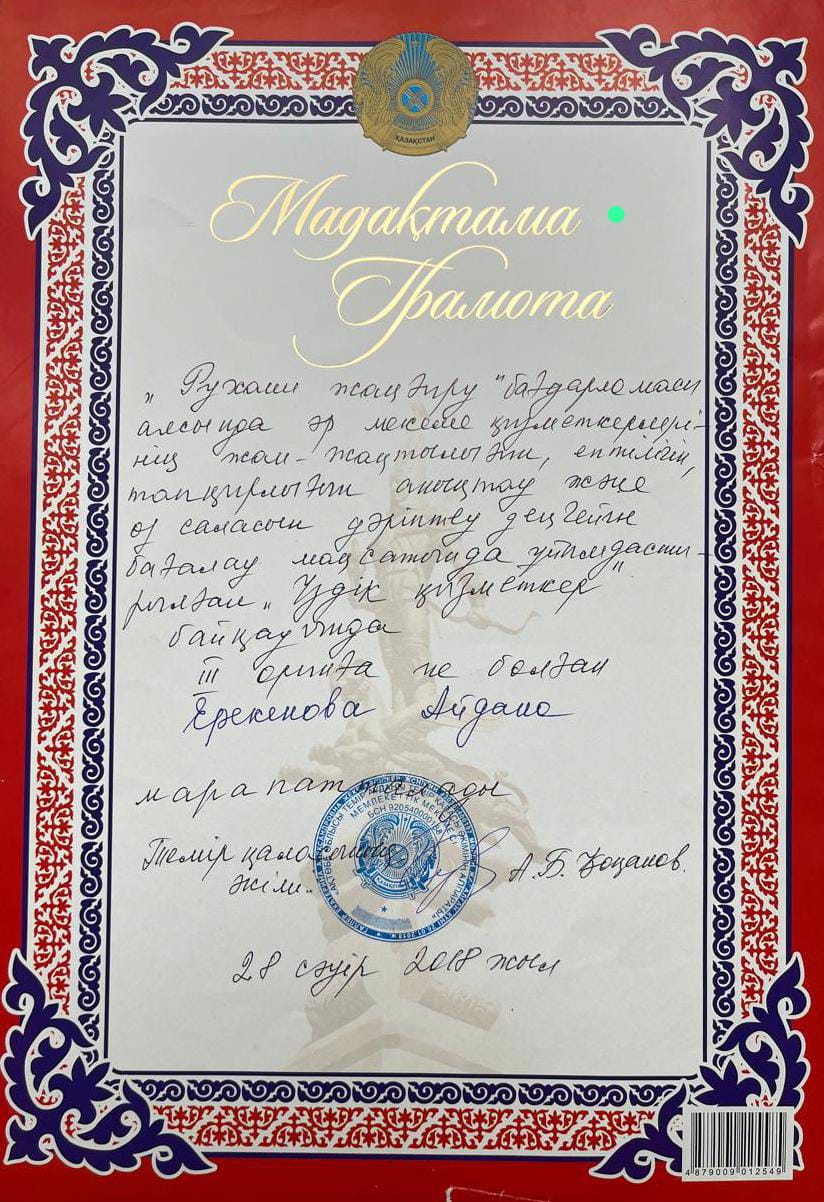 ҚАЗАҚСТАН
Мадақтама
Грамота
„Рухани жаңғыру" бағдарламасы
аясында әр мекеме қызметкерлері-
нің жан-жақтылығын, ептілігін,
тапқырлығын анықтау және
өз саласын дәріптеу деңгейін
бағалау мақсатында ұйымдасты-
рылған „Үздік қызметкер"
байқауында
III орынға ие болған
Ерекенова Айдана
марапатталады
Темір қаласының
әкімі.. А.Б.
МЕМЛЕКЕТТІК МЕКЕМЕСІ
БСН
28 сәуір 2018 жыл
4 879009 012549